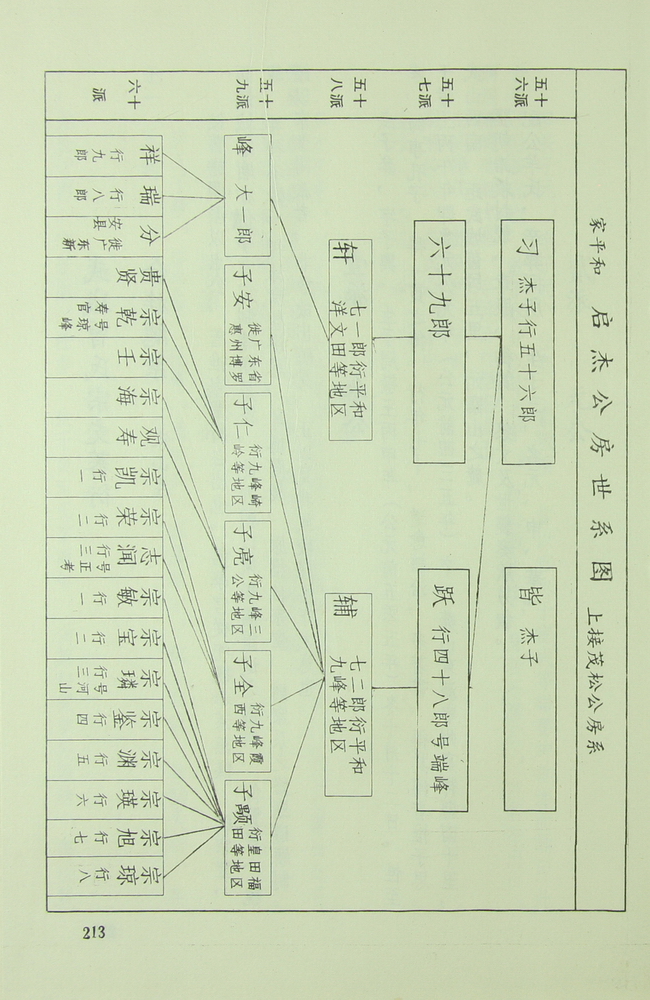 家平和 启杰公房世系图 上接茂松公房系
五十六派
习 杰子行五十六郎
皆 杰子
五十七派
六十九郎
跃 行四十八郎号端峰
五十八派
轩 七一郎衍平和洋文田等地区
辅 七二郎衍平和九峰等地区
五十九派
峰 大一郎
子安 徙广东省惠州博罗
子仁 衍九峰崎岭等地区
子亮 衍九峰三公等地区
子全 衍九峰霞西等地区
子颙 衍皇田福田等地区
六十派
祥 行九郎
瑞 行八郎
分 徙广东新安县
贵贤
宗乾 号琼峰寿官
宗壬
宗海
观寿
宗凯 行一
宗荣 行二
志润 行三号正考
宗敏 行一
宗宝 行二
宗璘 行三号河山
宗鉴 行四
宗渊 行五
宗瑛 行六
宗旭 行七
宗琼 行八
213